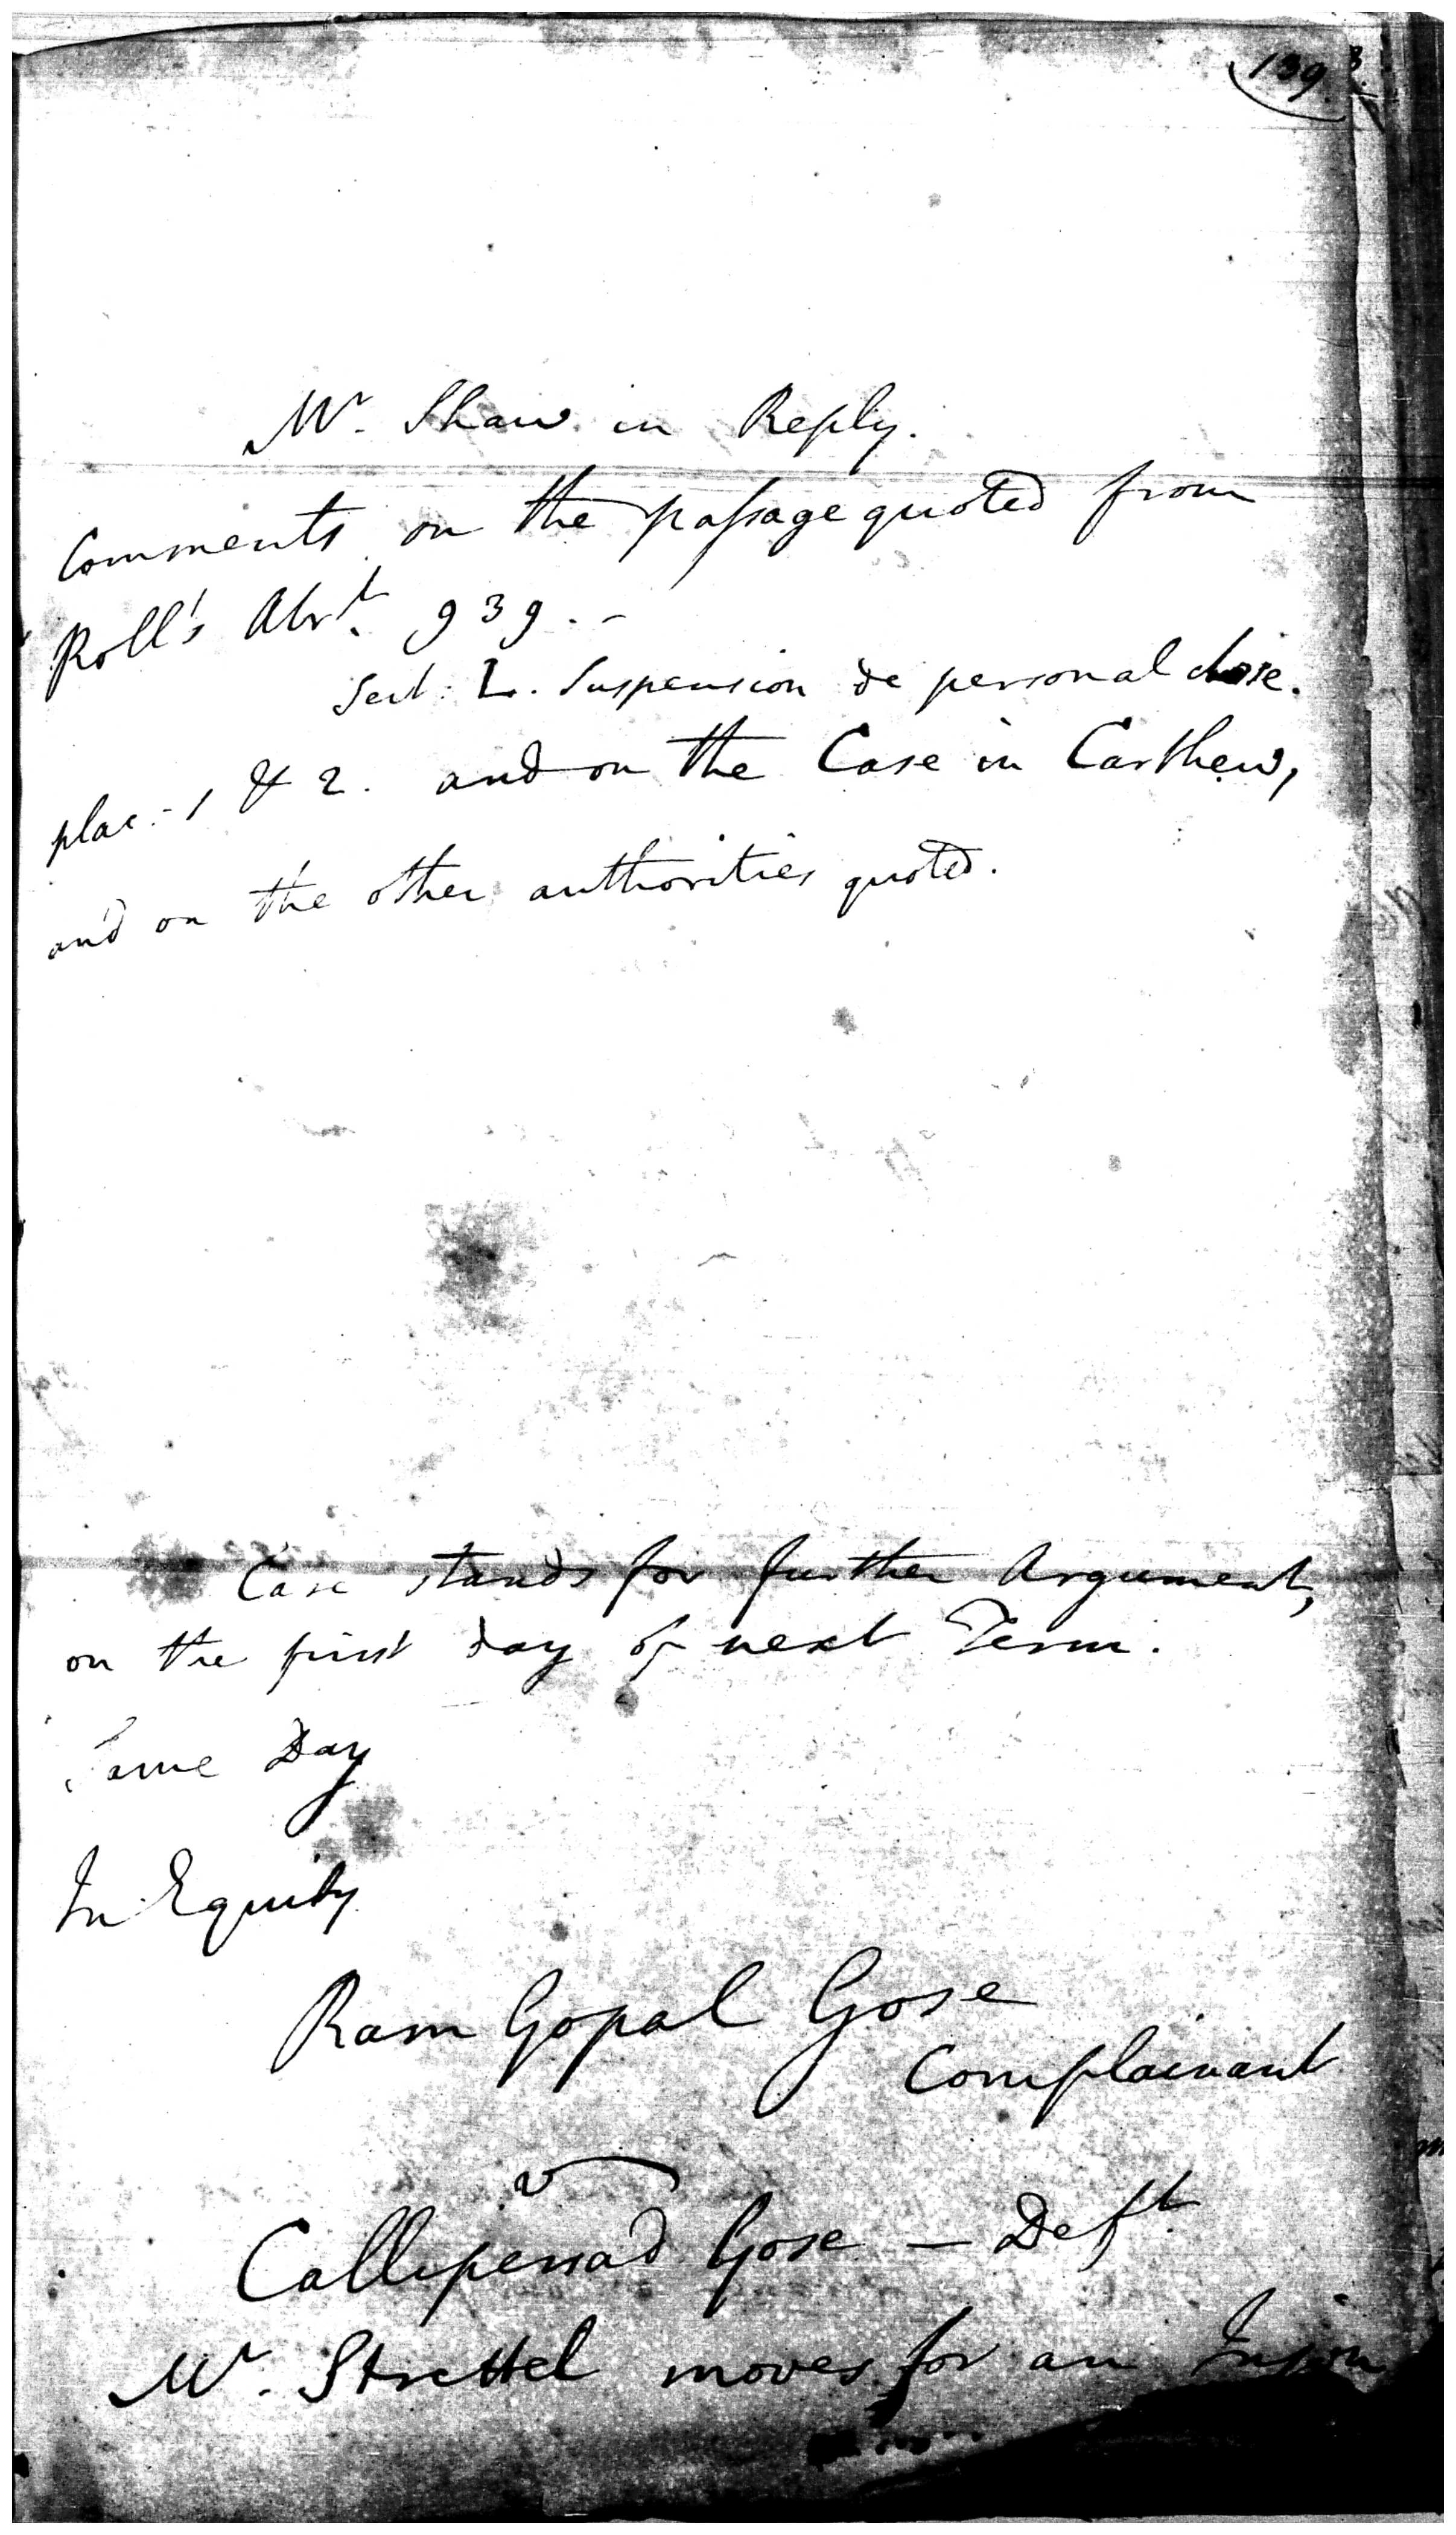 139
Mr. Shaw in Reply.
Comments on the passage quoted from
Roll's Abrt. 939. -
Sect: L. Suspension de personal chose.
plac: - 1 & 2. and on the Case in Carthew,
and on the other authorities quoted.
Case stands for further Argument,
on the first day of next Term.
Same Day
In Equity
Ram Gopal Gose
Complainant
v
Callipersad Gose - Deft
Mr. Strettel moves for an